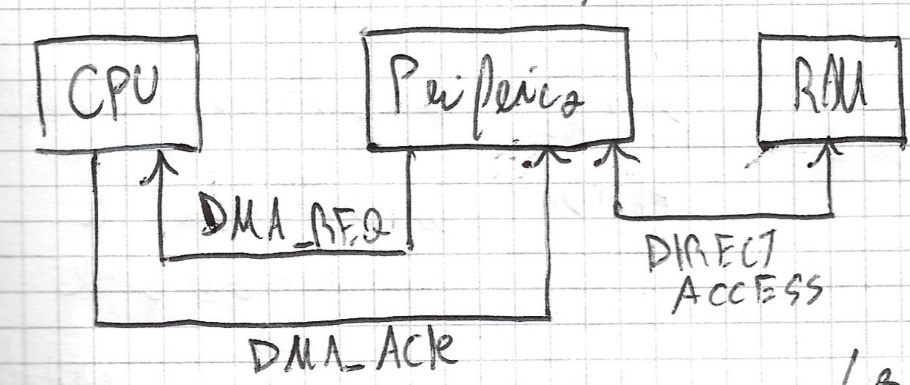 CPU
Periferica
RAM
DMA_REQ
DIRECT
ACCESS
DMA_Ack